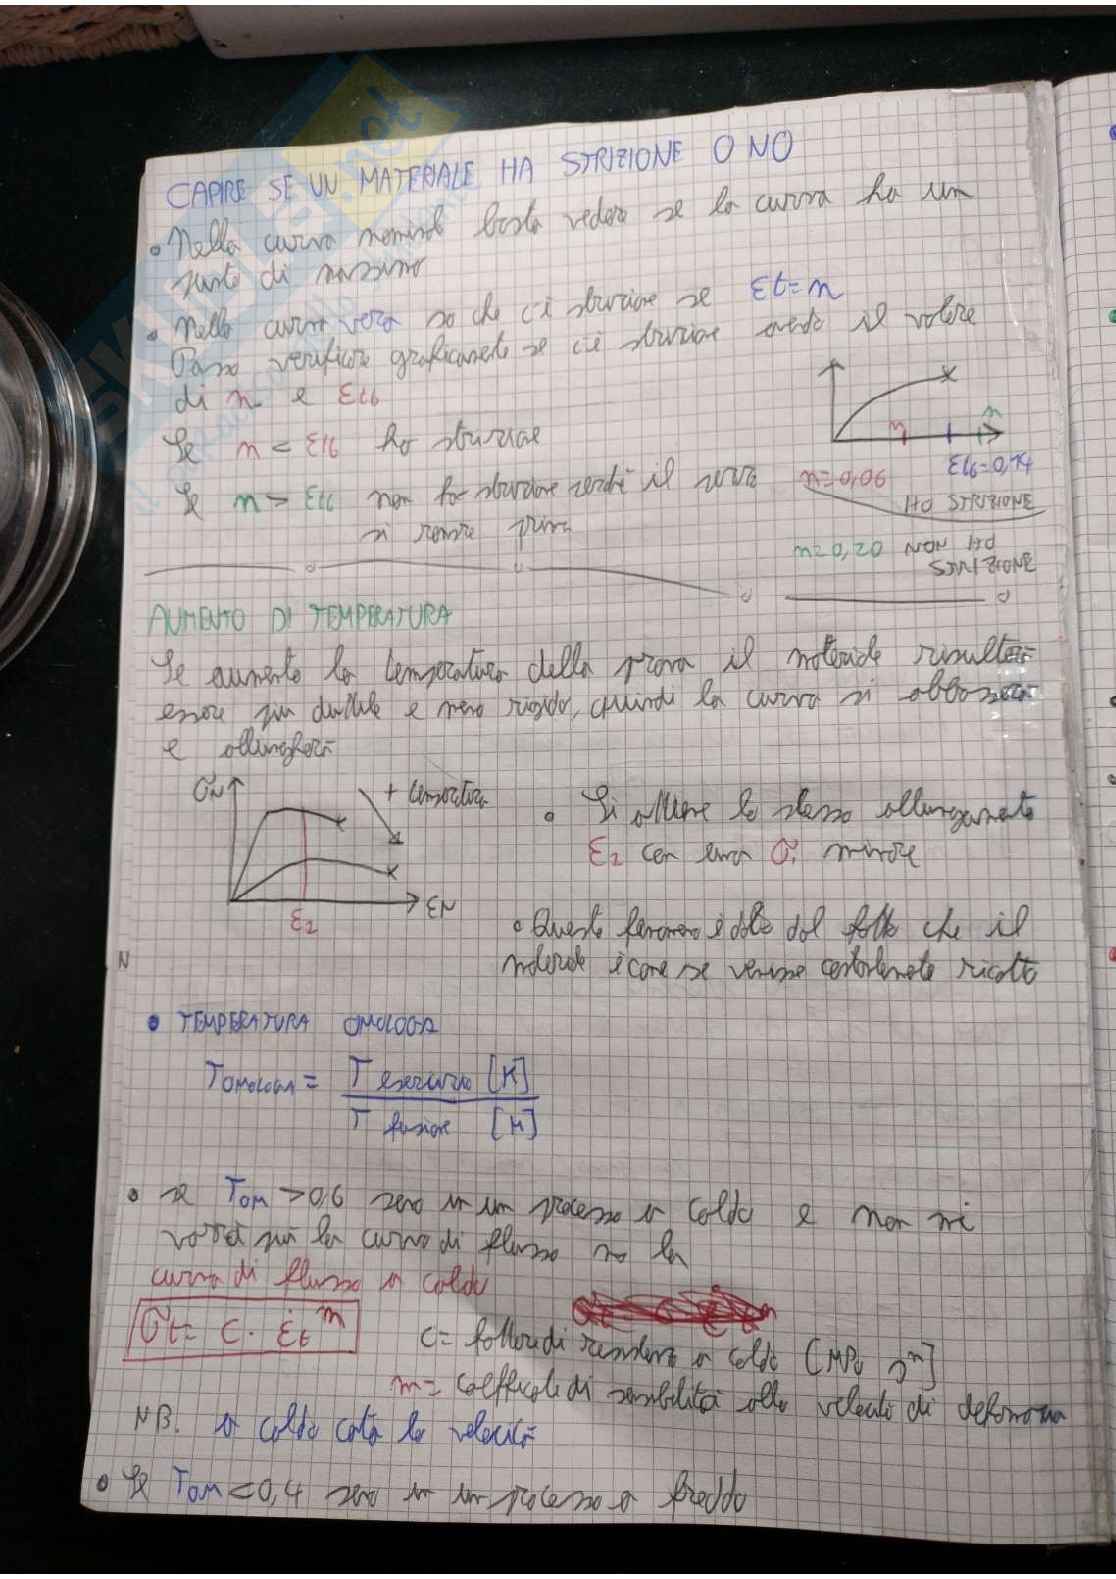 CAPIRE SE UN MATERIALE HA STRIZIONE O NO
• Nella curva nominale basta vedere se la curva ha un
punto di massimo
• Nella curva vera so che c'è strizione se εt=n
Posso verificare graficamente se c'è strizione avendo il valore
di n e
Se n < ho strizione
n=0,06
HO STRIZIONE
Se n > non ho strizione perché il
si rompe prima
n=0,20 NON HO
STRIZIONE
AUMENTO DI TEMPERATURA
Se aumento la temperatura della prova il materiale risulterà
essere più duttile e meno rigido, quindi la curva si abbasserà
e allungherà
σN
+ temperatura
εN
ε2
• Si ottiene lo stesso allungamento
ε2 con una σ minore
• Questo fenomeno è dato dal fatto che il
materiale è come se venisse costantemente ricotto
N
• TEMPERATURA OMOLOGA
TOMOLOGA = T esercizio [K]
T fusione [K]
• se TOM >0,6 sono in un processo a caldo e non mi
varrà più la curva di flusso ma la
curva di flusso a caldo
σt= C · ε̇t^m
C= fattore di resistenza a caldo [MPa s^m]
m= coefficiente di sensibilità alla velocità di deformazione
NB. a caldo conta la velocità
• Se TOM <0,4 sono in un processo a freddo